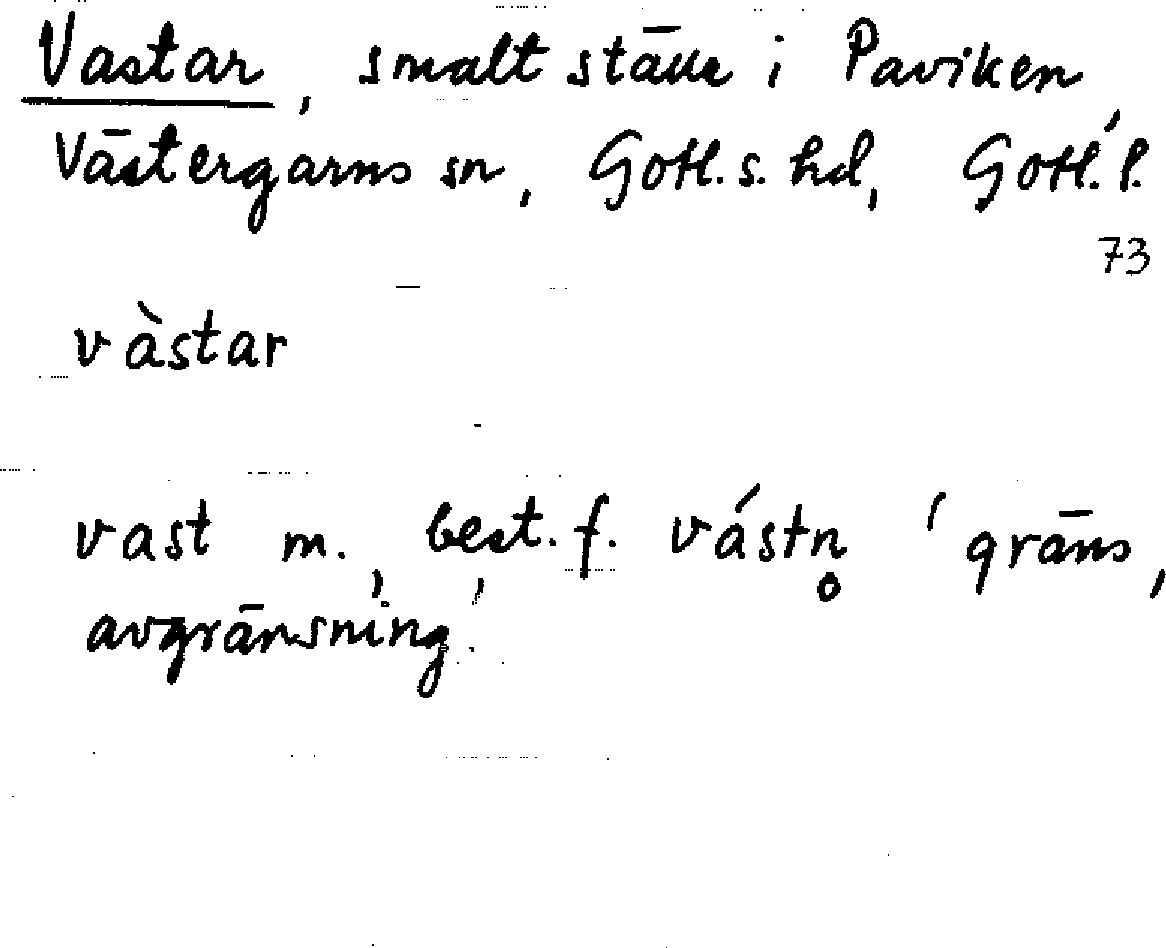 Vastar, smalt ställe i Paviken,
Västergarns sn, Gotl. s. hd, Gotl. l.
73
vàstar
vast m., best. f. vástn̥ 'gräns,
avgränsning.'